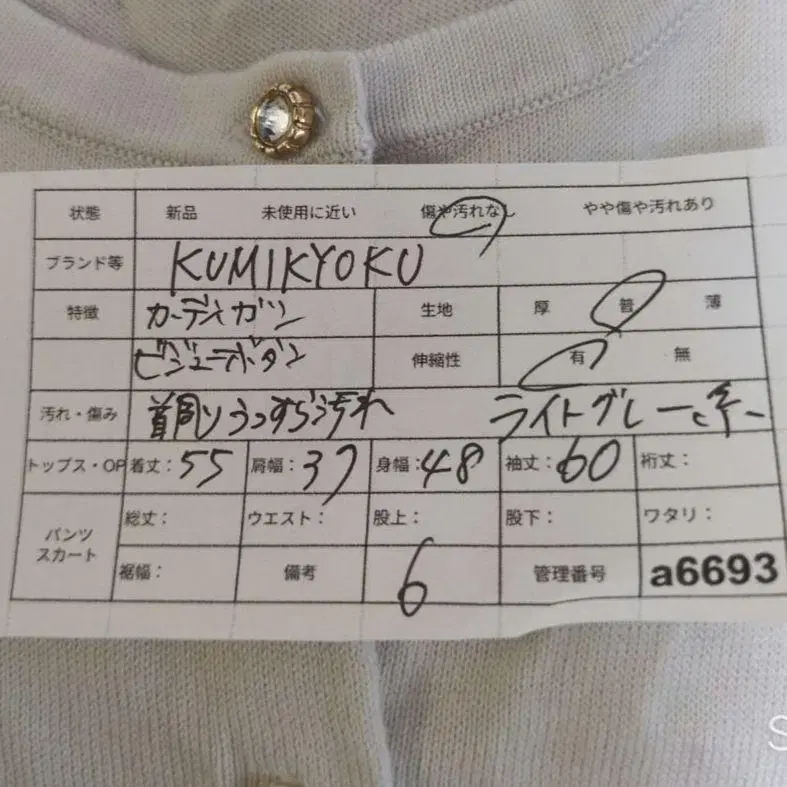 状態 新品 未使用に近い 傷や汚れなし やや傷や汚れあり
ブランド等 KUMIKYOKU
特徴 カーディガン 生地 厚 普 薄
ビジューボタン 伸縮性 有 無
汚れ・傷み 首周りうっすら汚れ ライトグレー系
トップス・OP 着丈:55 肩幅:37 身幅:48 袖丈:60 裄丈:
パンツ スカート 総丈: ウエスト: 股上: 股下: ワタリ:
裾幅: 備考 6 管理番号 a6693
S